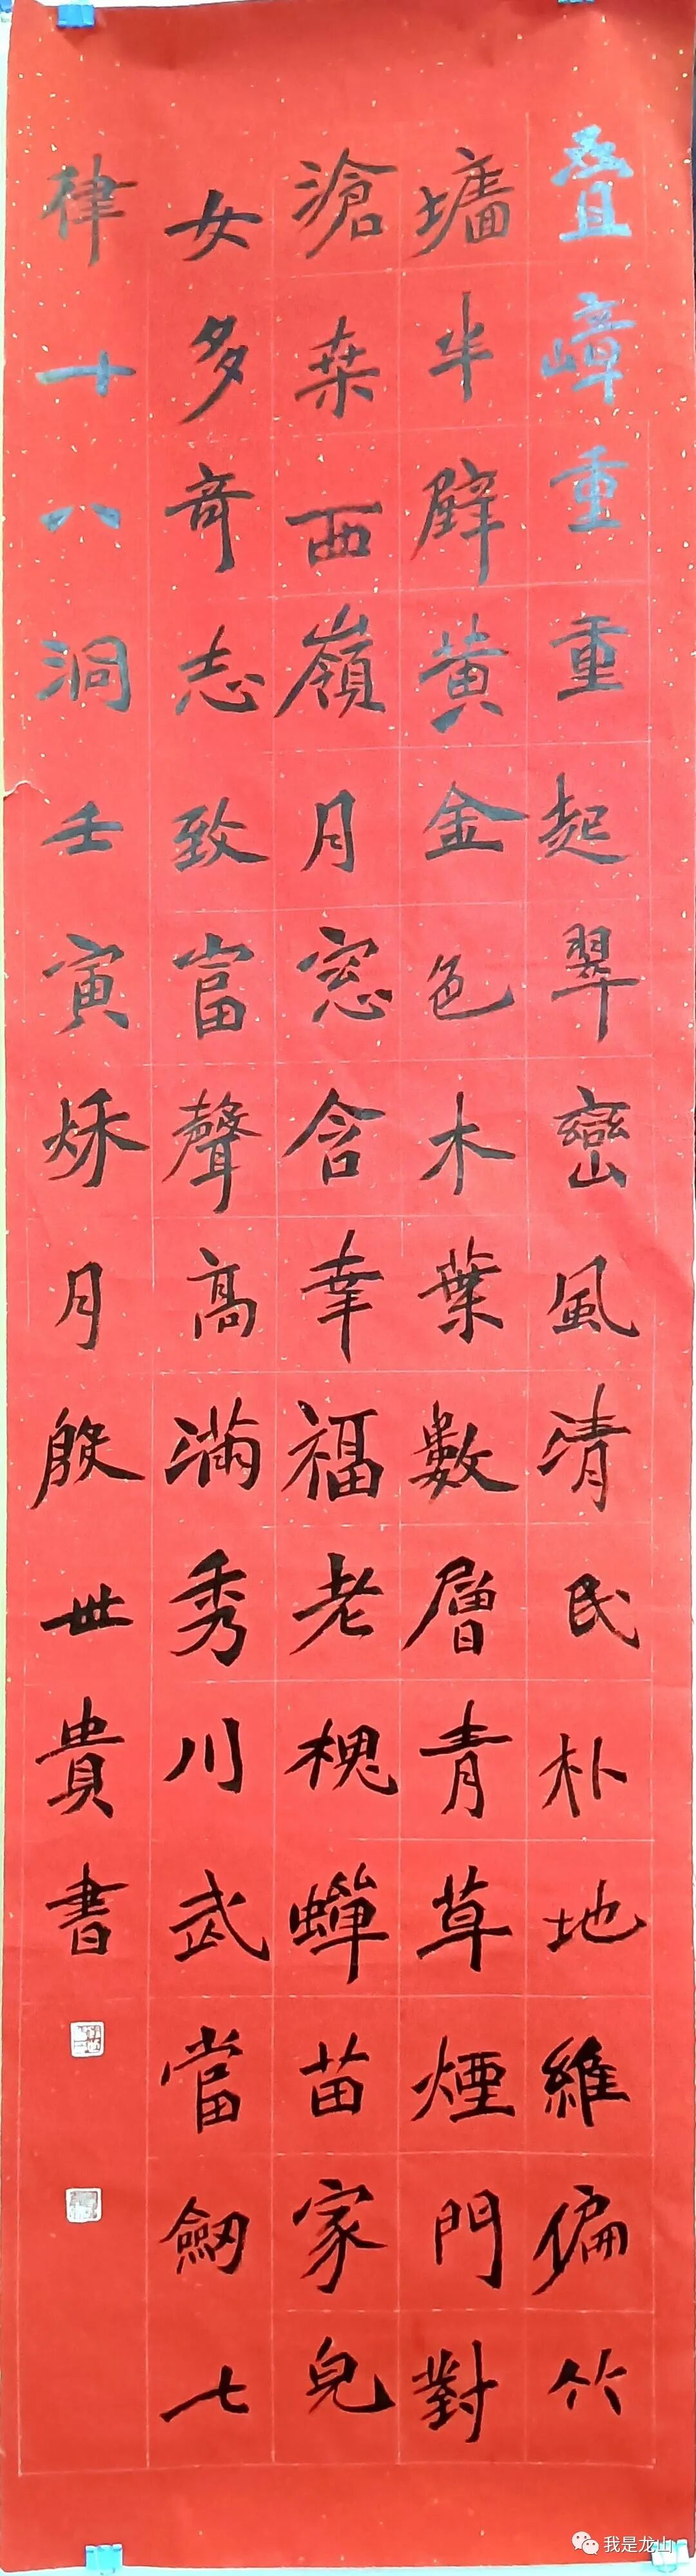 叠嶂重重起翠巒風清民朴地維偏竹
墻半壁黃金色木葉數層青草煙門對
滄桒西嶺月窓含幸福老槐蟬苗家兒
女多奇志致富聲高滿秀川武當劒七
律十八洞壬寅秌月殷世貴書
我是龙山